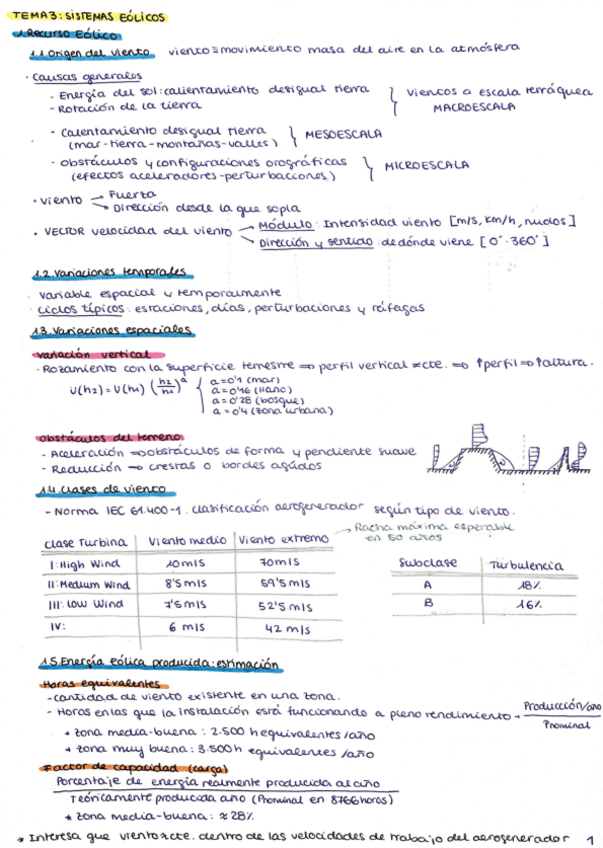 TEMA 3: SISTEMAS EÓLICOS
1. Recurso Eólico
1.1. Origen del viento viento ≡ movimiento masa del aire en la atmósfera
· Causas generales
- Energía del sol: calientamiento desigual tierra
- Rotación de la tierra
} vientos a escala terráquea
MACROESCALA
- Calentamiento desigual tierra
(mar-tierra-montañas-valles)
} MESOESCALA
- Obstáculos y configuraciones orográficas
(efectos aceleradores-perturbaciones)
} MICROESCALA
· viento → Fuerza
→ Dirección desde la que sopla
· VECTOR velocidad del viento → Módulo: Intensidad viento [m/s, km/h, nudos]
→ Dirección y sentido: de dónde viene [0°-360°]
1.2. Variaciones temporales
· Variable espacial y temporalmente
· Ciclos típicos: estaciones, días, perturbaciones y ráfagas
1.3. Variaciones espaciales
Variación vertical
· Rozamiento con la superficie terrestre ⇒ perfil vertical ≠ cte. ⇒ ↑perfil ⇒ ↑altura.
U(h2) = U(h1) (h2/h1)^a
{ a = 0'1 (mar)
a = 0'16 (llano)
a = 0'28 (bosque)
a = 0'4 (zona urbana)
Obstáculos del terreno
- Aceleración ⇒ obstáculos de forma y pendiente suave
- Reducción → crestas o bordes agudos
1.4. Clases de viento
- Norma IEC 61.400-1. clasificación aerogenerador según tipo de viento.
→ Racha máxima esperable
en 50 años
Clase Turbina | Viento medio | Viento extremo
I: High Wind | 10 m/s | 70 m/s
II: Medium Wind | 8'5 m/s | 59'5 m/s
III: Low Wind | 7'5 m/s | 52'5 m/s
IV: | 6 m/s | 42 m/s
Subclase | Turbulencia
A | 18%
B | 16%
1.5. Energía eólica producida: estimación
Horas equivalentes
- Cantidad de viento existente en una zona.
- Horas en las que la instalación está funcionando a pleno rendimiento → Producción/año
Pnominal
* zona media-buena: 2.500 h equivalentes/año
* zona muy buena: 3.500 h equivalentes/año
Factor de capacidad (carga)
Porcentaje de energía realmente producida al año
Teóricamente producida año (Pnominal en 8766 horas)
* Zona media-buena: ≈ 28%
* Interesa que viento ≈ cte. dentro de las velocidades de trabajo del aerogenerador 1